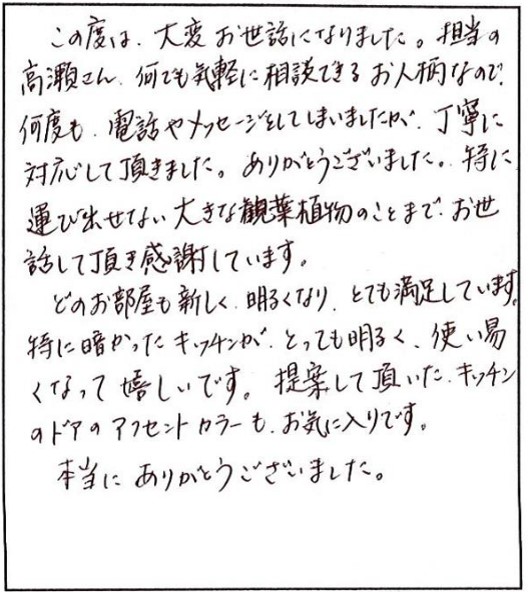 この度は、大変お世話になりました。担当の
高瀬さん、何でも気軽に相談できるお人柄なので、
何度も、電話やメッセージをしてしまいましたが、丁寧に
対応して頂きました。ありがとうございました。特に
運び出せない大きな観葉植物のことまで、お世
話して頂き感謝しています。
どのお部屋も新しく、明るくなり、とても満足しています。
特に暗かったキッチンが、とっても明るく、使い易
くなって嬉しいです。提案して頂いた、キッチン
のドアのアクセントカラーも、お気に入りです。
本当にありがとうございました。